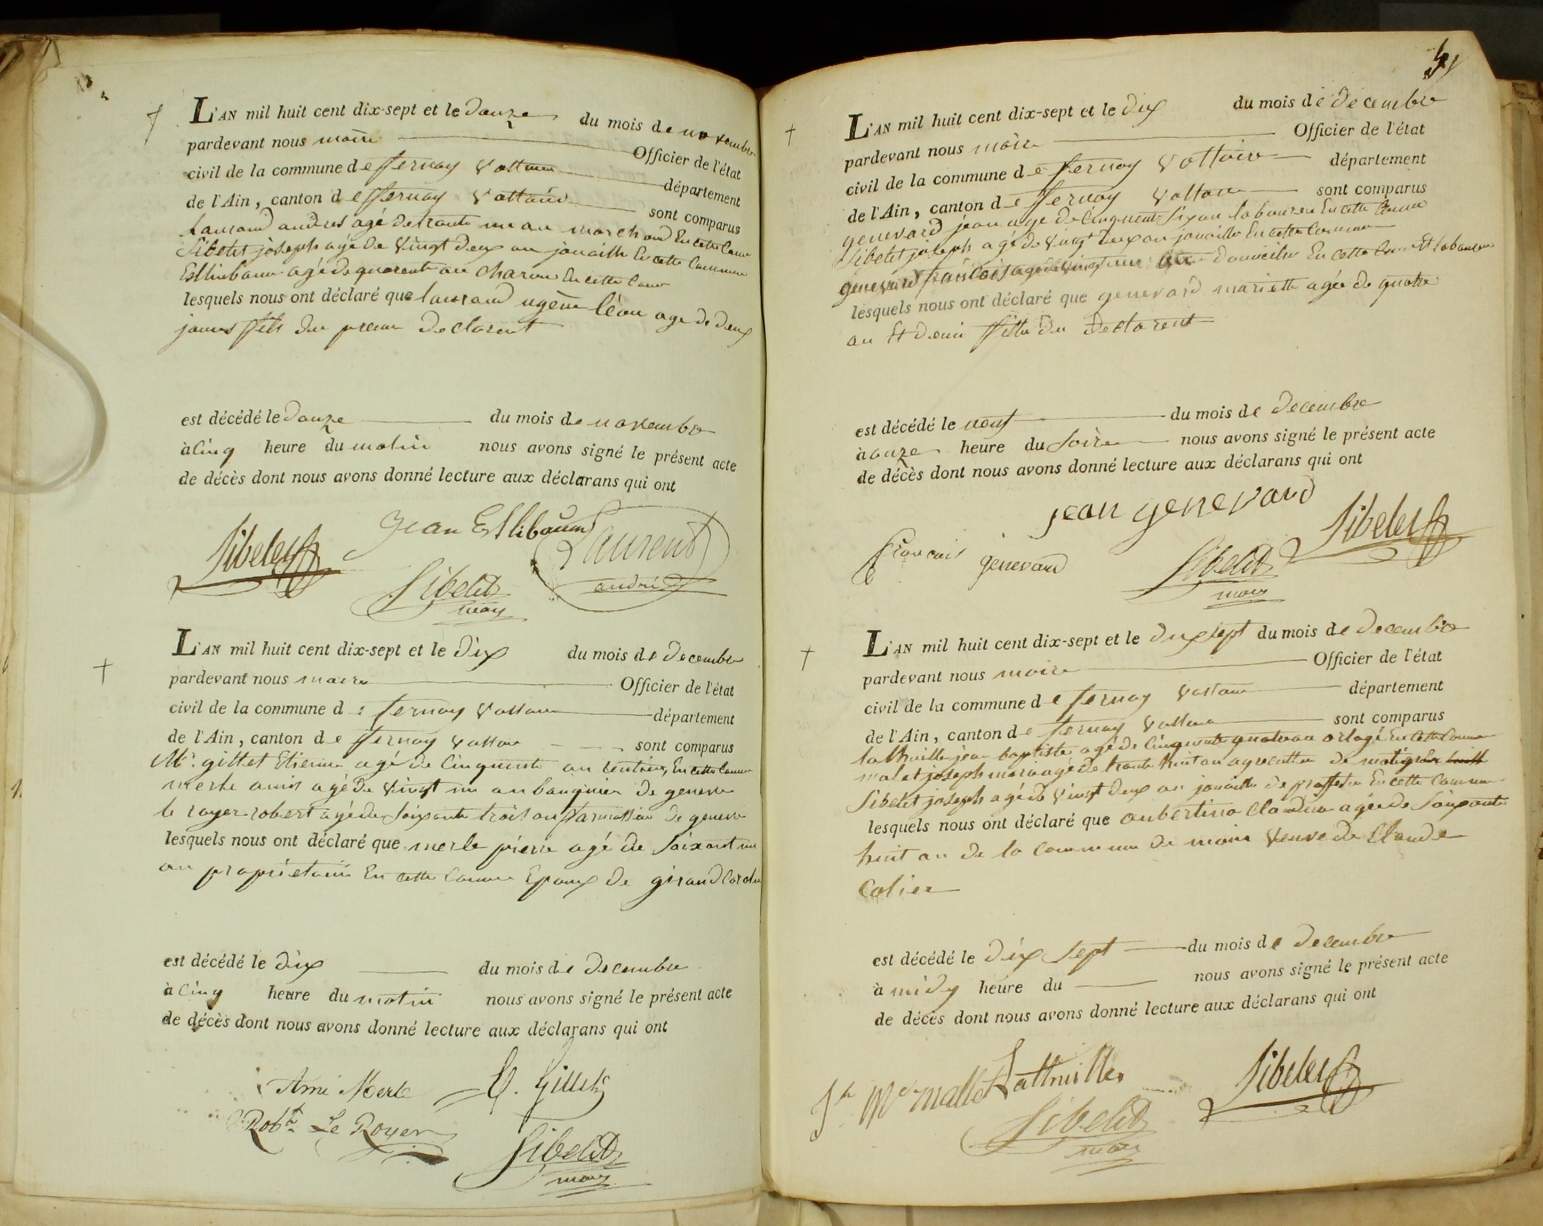 L'AN mil huit cent dix-sept et le douze du mois de novembre
pardevant nous maire Officier de l'état
civil de la commune de ffernay Voltaire département
de l'Ain, canton de ffernay Voltaire sont comparus
Laurand andres agé de trante un an marchand En cette Comm
Sibelet joseph agé de vingt deux an jouaille En cette Commune
Esllinbaum agé de quarente an charon En cette Comm
lesquels nous ont déclaré que laurand ugène léon age de deux
jours fils du premier Declarent
est décédé le douze du mois de novembre
à Cinq heure du matin nous avons signé le présent acte
de décès dont nous avons donné lecture aux déclarans qui ont
Sibelet Jean Esllibaum Laurent
andré
Sibelet
maire
L'AN mil huit cent dix-sept et le dix du mois de Decembre
pardevant nous maire Officier de l'état
civil de la commune de ffernay Voltaire département
de l'Ain, canton de ffernay Voltaire sont comparus
Mr. gillet Etienne agé de Cinquente an rentier En cette Comm
merle amis agé de vingt un an banquier de geneve
le royer robert agé de soixante trois an farmasien de geneve
lesquels nous ont déclaré que merle pierre agé de soixant un
an propriétaire En cette Comune Epoux de giraud
est décédé le dix du mois de Decembre
à Cinq heure du matin nous avons signé le présent acte
de décès dont nous avons donné lecture aux déclarans qui ont
Ami Merle E. Gillet
Robt. Le Royer
Sibelet
maire
L'AN mil huit cent dix-sept et le dix du mois de Decembre
pardevant nous maire Officier de l'état
civil de la commune de ffernay Voltaire département
de l'Ain, canton de ffernay Voltaire sont comparus
genevard jean age de Cinquent six an laboureur En cette Comm
Sibelet joseph agé de vingt deux an jouaille En cette Commune
genevard francois agé de vingt un an Domicilie En cette Com Et laboureur
lesquels nous ont déclaré que genevard mariette agée de quatre
an Et demi ffille du Declarent
est décédé le neuf du mois de Decembre
à onze heure du soire nous avons signé le présent acte
de décès dont nous avons donné lecture aux déclarans qui ont
jean genevard
francois genevard Sibelet Sibelet
maire
L'AN mil huit cent dix-sept et le dix sept du mois de Decembre
pardevant nous maire Officier de l'état
civil de la commune de ffernay Voltaire département
de l'Ain, canton de ffernay Voltaire sont comparus
lathuille jean baptiste agé de Cinquente quatre an orlogé En cette Comm
malet joseph agé de trante huit an agreculteu de
Sibelet joseph agé de vingt deux an jouaille de proffesion En cette Commune
lesquels nous ont déclaré que aubertine Claudine agée de soixante
huit an de la commune de veuve de Claude
Colier
est décédé le dix sept du mois de Decembre
à midy heure du nous avons signé le présent acte
de décès dont nous avons donné lecture aux déclarans qui ont
Jh Me mallet Lathuille Sibelet
Sibelet
maire